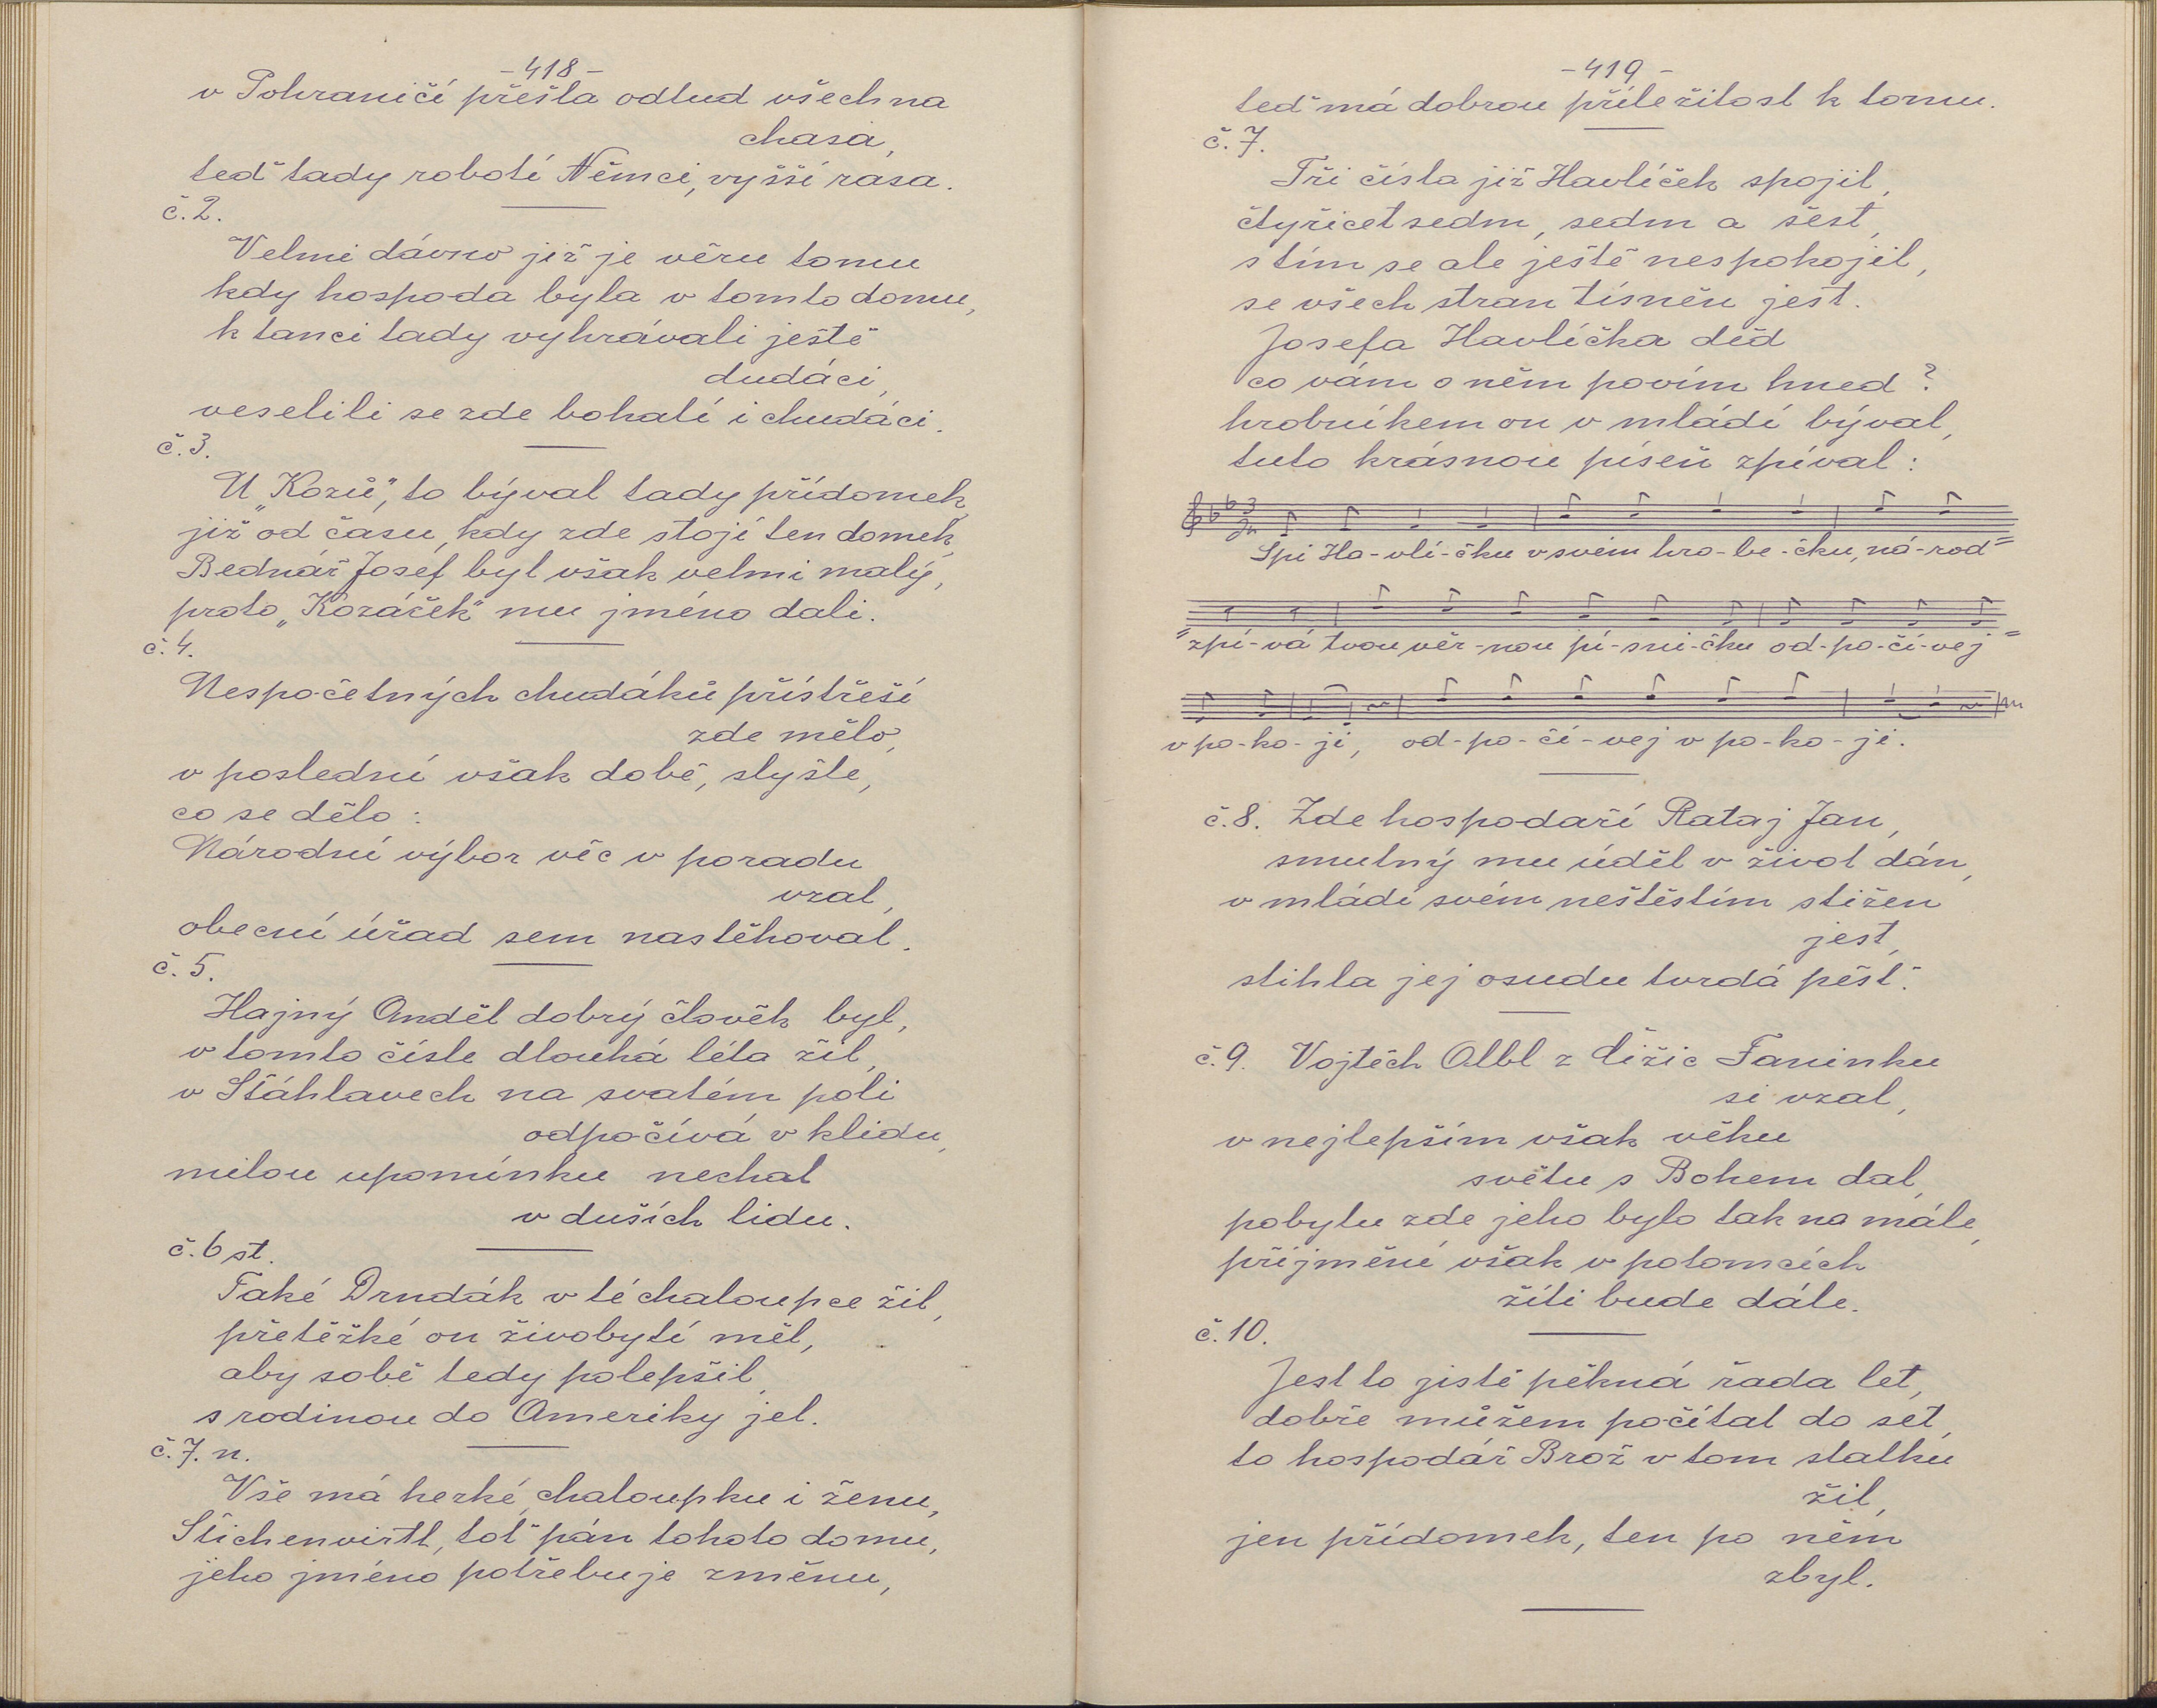 -418-
v Pohraničí přešla odtud všechna
chasa,
teď tady robotí Němci, vyšší rasa.
č. 2.
Velmi dávno již je věru tomu
kdy hospoda byla v tomto domu,
k tanci tady vyhrávali ještě
dudáci,
veselili se zde bohatí i chudáci.
č. 3.
U „Kozů", to býval tady přídomek,
již od času, kdy zde stojí ten domek,
Bednář Josef byl však velmi malý,
proto „Kozáček" mu jméno dali.
č. 4.
Nespočetných chudáků přístřeší
zde mělo,
v poslední však době, slyšte,
co se dělo:
Národní výbor věc v poradu
vzal,
obecní úřad sem nastěhoval.
č. 5.
Hajný Anděl dobrý člověk byl,
v tomto čísle dlouhá léta žil,
v Šťáhlavech na svatém poli
odpočívá v klidu,
milou upomínku nechal
v duších lidu.
č. 6 st.
Také Drudák v té chaloupce žil,
přetěžké on živobytí měl,
aby sobě tedy polepšil,
s rodinou do Ameriky jel.
č. 7. n.
Vše má hezké, chaloupku i ženu,
Štichenvirtl, toť pán tohoto domu,
jeho jméno potřebuje změnu,
-419-
teď má dobrou příležitost k tomu.
č. 7.
Tři čísla již Havlíček spojil,
čtyřicet sedm, sedm a šest,
s tím se ale ještě nespokojil,
se všech stran tísněn jest.
Josefa Havlíčka děd
co vám o něm povím hned?
hrobníkem on v mládí býval,
tuto krásnou píseň zpíval:
Spi Ha-vlí-čku v svém hro-be-čku, ná-rod=
=zpí-vá tvou věr-nou pí-sni-čku od-po-čí-vej=
v po-ko-ji, od-po-čí-vej v po-ko-ji.
č. 8. Zde hospodaří Rataj Jan,
smutný mu úděl v život dán,
v mládí svém neštěstím stižen
jest,
stihla jej osudu tvrdá pěst.
č. 9. Vojtěch Albl z Čižic Faninku
si vzal,
v nejlepším však věku
světu s Bohem dal,
pobytu zde jeho bylo tak na mále,
příjmění však v potomcích
žíti bude dále.
č. 10.
Jest to jistě pěkná řada let,
dobře můžem počítat do set,
to hospodář Brož v tom statku
žil,
jen přídomek, ten po něm
zbyl.